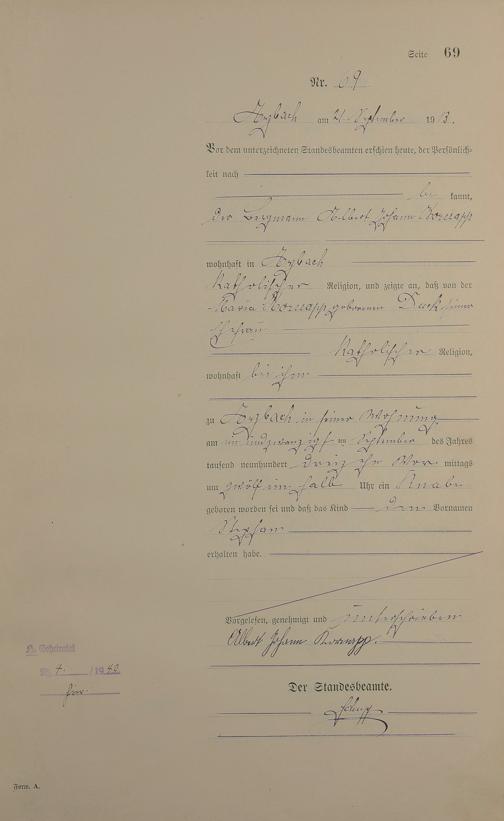 Seite 69
Nr. 69
am 21. September 1913.
Vor dem unterzeichneten Standesbeamten erschien heute, der Persönlich-
keit nach
be kannt,
der Bergmann Albert Johann
wohnhaft in
katholischer Religion, und zeigte an, daß von der
Maria geborenen seiner
Ehefrau
katholischer Religion,
wohnhaft bei ihm
zu in seiner Wohnung
am ein und zwanzigsten September des Jahres
tausend neunhundert dreizehn Vor mittags
um zwölf ein halb Uhr ein Knabe
geboren worden sei und daß das Kind den Vornamen
Stephan
erhalten habe.
Vorgelesen, genehmigt und unterschrieben
Albert Johann
Der Standesbeamte.
Form. A.